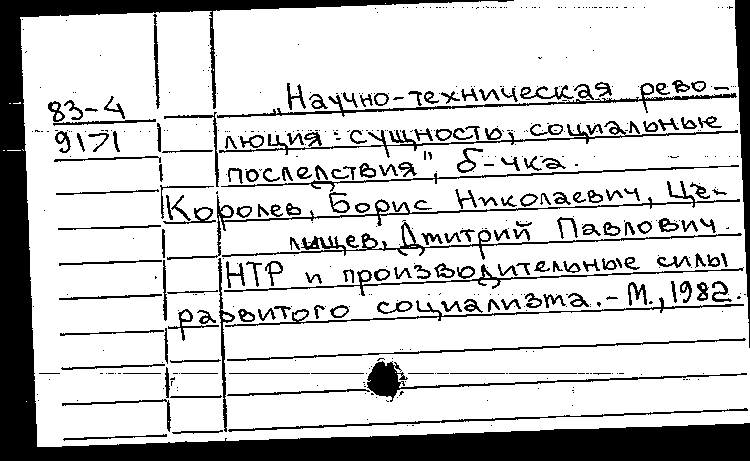 83-4 „Научно-техническая рево-
9171 люция: сущность, социальные
последствия", б-чка.
Королев, Борис Николаевич, Це-
лищев, Дмитрий Павлович.
НТР и производительные силы
развитого социализма.-М.,1982.